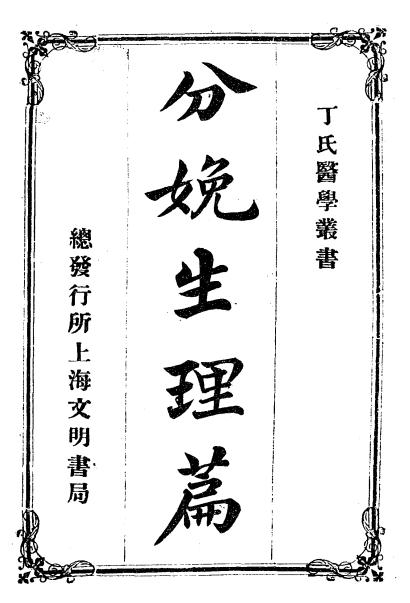 丁氏醫學叢書
分娩生理篇
總發行所上海文明書局